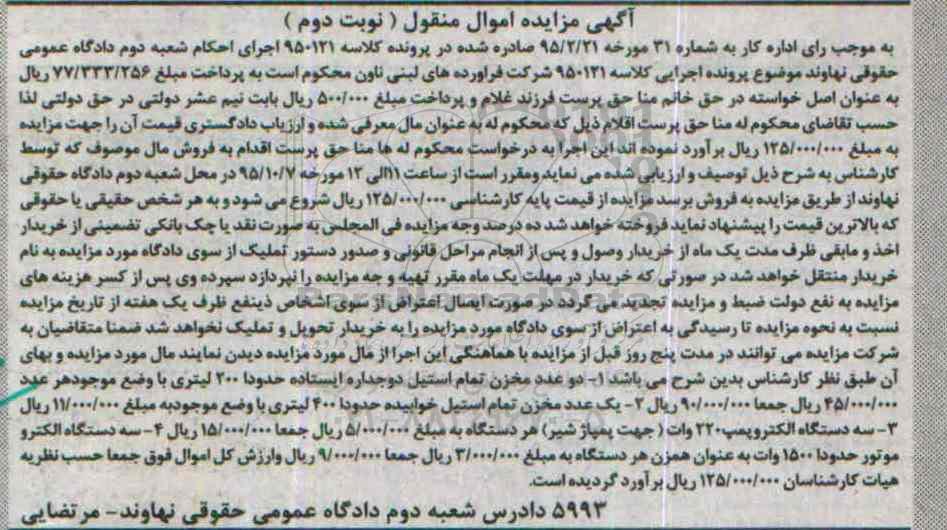 آگهی مزایده اموال منقول ( نوبت دوم )
به موجب رای اداره کار به شماره ۳۱ مورخه ۹۵/۲/۲۱ صادره شده در پرونده کلاسه ۹۵۰۱۲۱ اجرای احکام شعبه دوم دادگاه عمومی
حقوقی نهاوند موضوع پرونده اجرایی کلاسه ۹۵۰۱۲۱ شرکت فراورده های لبنی ناون محکوم است به پرداخت مبلغ ۷۷/۳۳۳/۲۵۶ ریال
به عنوان اصل خواسته در حق خانم منا حق پرست فرزند غلام و پرداخت مبلغ ۵۰۰/۰۰۰ ریال بابت نیم عشر دولتی در حق دولتی لذا
حسب تقاضای محکوم له منا حق پرست اقلام ذیل که محکوم له به عنوان مال معرفی شده و ارزیاب دادگستری قیمت آن را جهت مزایده
به مبلغ ۱۲۵/۰۰۰/۰۰۰ ریال برآورد نموده اند این اجرا به درخواست محکوم له ها منا حق پرست اقدام به فروش مال موصوف که توسط
کارشناس به شرح ذیل توصیف و ارزیابی شده می نماید ومقرر است از ساعت ۱۱الی ۱۲ مورخه ۹۵/۱۰/۷ در محل شعبه دوم دادگاه حقوقی
نهاوند از طریق مزایده به فروش برسد مزایده از قیمت پایه کارشناسی ۱۲۵/۰۰۰/۰۰۰ ریال شروع می شود و به هر شخص حقیقی یا حقوقی
که بالاترین قیمت را پیشنهاد نماید فروخته خواهد شد ده درصد وجه مزایده فی المجلس به صورت نقد یا چک بانکی تضمینی از خریدار
اخذ و مابقی ظرف مدت یک ماه از خریدار وصول و پس از انجام مراحل قانونی و صدور دستور تملیک از سوی دادگاه مورد مزایده به نام
خریدار منتقل خواهد شد در صورتی که خریدار در مهلت یک ماه مقرر تهیه و جه مزایده را نپردازد سپرده وی پس از کسر هزینه های
مزایده به نفع دولت ضبط و مزایده تجدید می گردد در صورت ایصال اعتراض از سوی اشخاص ذینفع ظرف یک هفته از تاریخ مزایده
نسبت به نحوه مزایده تا رسیدگی به اعتراض از سوی دادگاه مورد مزایده را به خریدار تحویل و تملیک نخواهد شد ضمنا متقاضیان به
شرکت مزایده می توانند در مدت پنج روز قبل از مزایده با هماهنگی این اجرا از مال مورد مزایده دیدن نمایند مال مورد مزایده و بهای
آن طبق نظر کارشناس بدین شرح می باشد ۱- دو عدد مخزن تمام استیل دوجداره ایستاده حدودا ۲۰۰ لیتری با وضع موجودهر عدد
۴۵/۰۰۰/۰۰۰ ریال جمعا ۹۰/۰۰۰/۰۰۰ ریال ۲- یک عدد مخزن تمام استیل خوابیده حدودا ۴۰۰ لیتری با وضع موجودبه مبلغ ۱۱/۰۰۰/۰۰۰ ریال
۳- سه دستگاه الکتروپمپ۲۲۰ وات ( جهت پمپاژ شیر) هر دستگاه به مبلغ ۵/۰۰۰/۰۰۰ ریال جمعا ۱۵/۰۰۰/۰۰۰ ریال ۴- سه دستگاه الکترو
موتور حدودا ۱۵۰۰ وات به عنوان همزن هر دستگاه به مبلغ ۳/۰۰۰/۰۰۰ ریال جمعا ۹/۰۰۰/۰۰۰ ریال وارزش کل اموال فوق جمعا حسب نظریه
هیات کارشناسان ۱۲۵/۰۰۰/۰۰۰ ریال برآورد گردیده است.
۵۹۹۳ دادرس شعبه دوم دادگاه عمومی حقوقی نهاوند- مرتضایی